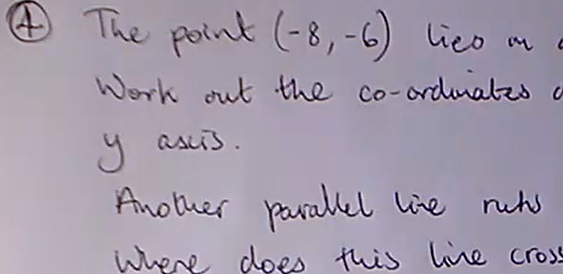 ④ The point (-8,-6) lies on
Work out the co-ordinates
y axis.
Another parallel line runs
Where does this line cross